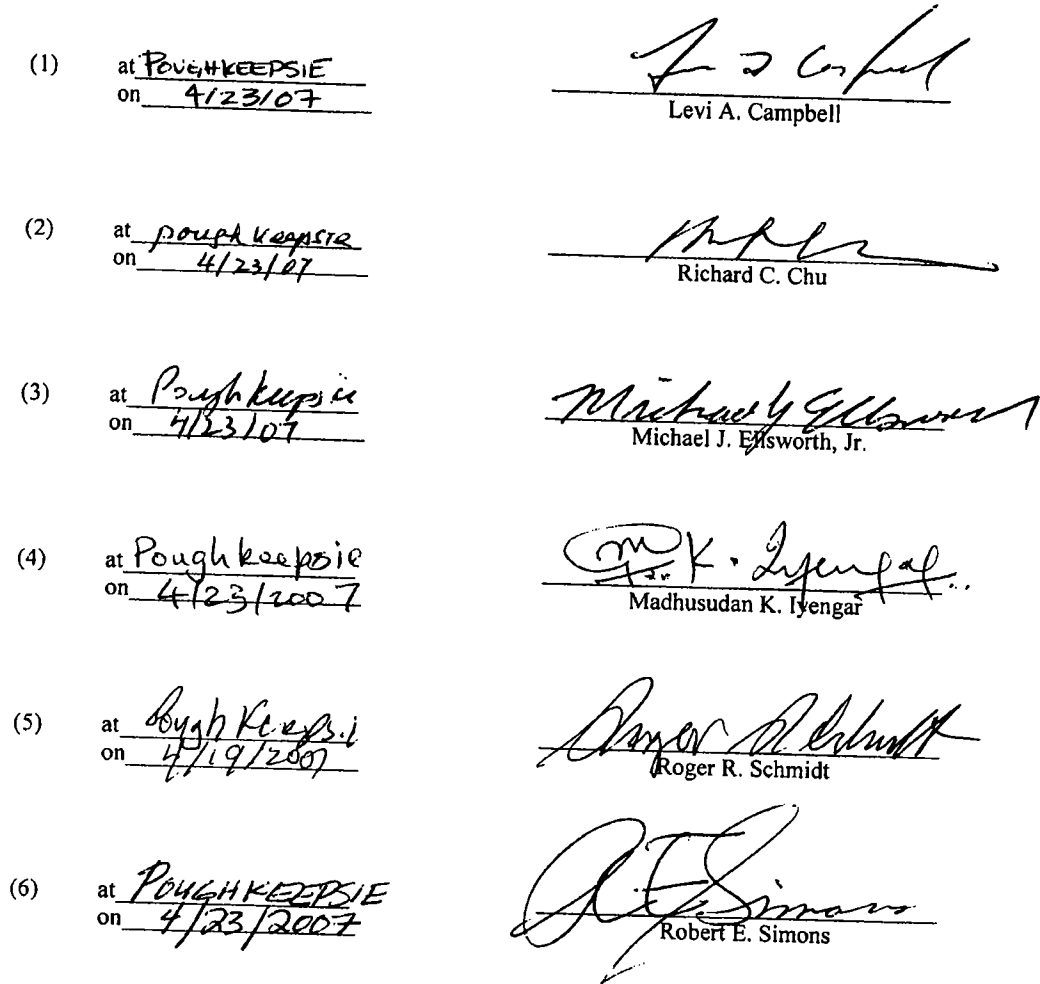 (1) at POUGHKEEPSIE
on 4/23/07
Levi A. Campbell
(2) at poughkeepsie
on 4/23/07
Richard C. Chu
(3) at Poughkeepsie
on 4/23/07 Michael J Ellsworth
Michael J. Ellsworth, Jr.
(4) at Poughkeepsie
on 4/23/2007 M K. Iyengar
Madhusudan K. Iyengar
(5) at Poughkeepsi
on 4/19/2007 Roger R Schmidt
Roger R. Schmidt
(6) at POUGHKEEPSIE
on 4/23/2007 R E Simons
Robert E. Simons